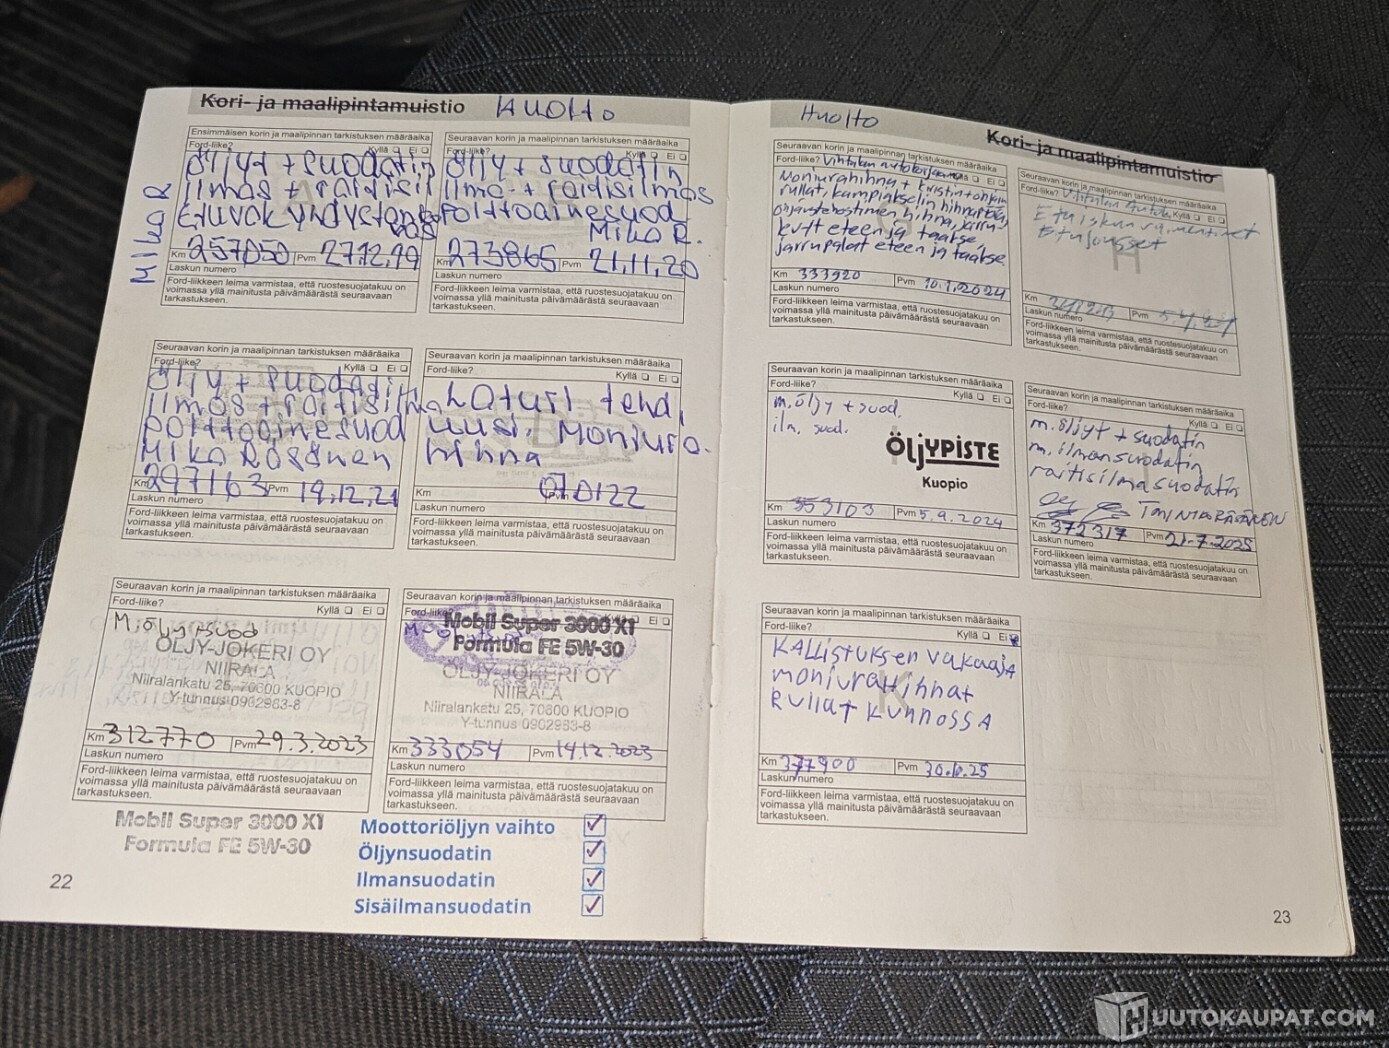 Kori- ja maalipintamuistio HUOLTO
Ensimmäisen korin ja maalipinnan tarkistuksen määräaika
Ford-liike? Kyllä Ei
Öljyt + suodatin
ilmas + raitisil
Etuvak
Km 257050 Pvm 27.12.19
Mika R
Laskun numero
Ford-liikkeen leima varmistaa, että ruostesuojatakuu on
voimassa yllä mainitusta päivämäärästä seuraavaan
tarkastukseen.
Seuraavan korin ja maalipinnan tarkistuksen määräaika
Ford-liike? Kyllä Ei
Öljy + suodatin
ilma + raitisilmas
polttoainesuod
Mika R.
Km 273865 Pvm 21.11.20
Laskun numero
Ford-liikkeen leima varmistaa, että ruostesuojatakuu on
voimassa yllä mainitusta päivämäärästä seuraavaan
tarkastukseen.
Seuraavan korin ja maalipinnan tarkistuksen määräaika
Ford-liike? Kyllä Ei
Öljy + suodatin
ilmas + raitisilma
polttoainesuod
Mika Räsänen
Km 297163 Pvm 19.12.21
Laskun numero
Ford-liikkeen leima varmistaa, että ruostesuojatakuu on
voimassa yllä mainitusta päivämäärästä seuraavaan
tarkastukseen.
Seuraavan korin ja maalipinnan tarkistuksen määräaika
Ford-liike? Kyllä Ei
Laturi tehd,
uusi moniura.
hihna
Km
Laskun numero
Ford-liikkeen leima varmistaa, että ruostesuojatakuu on
voimassa yllä mainitusta päivämäärästä seuraavaan
tarkastukseen.
Seuraavan korin ja maalipinnan tarkistuksen määräaika
Ford-liike? Kyllä Ei
M.öljy+suod
ÖLJY-JOKERI OY
NIIRALA
Niiralankatu 25, 70600 KUOPIO
Y-tunnus 0902983-8
Km 312770 Pvm 29.3.2023
Laskun numero
Ford-liikkeen leima varmistaa, että ruostesuojatakuu on
voimassa yllä mainitusta päivämäärästä seuraavaan
tarkastukseen.
Mobil Super 3000 X1
Formula FE 5W-30
Seuraavan korin ja maalipinnan tarkistuksen määräaika
Ford-liike? Ei
Mobil Super 3000 X1
Formula FE 5W-30
ÖLJY-JOKERI OY
NIIRALA
Niiralankatu 25, 70600 KUOPIO
Y-tunnus 0902983-8
Km 333054 Pvm 14.12.2023
Laskun numero
Ford-liikkeen leima varmistaa, että ruostesuojatakuu on
voimassa yllä mainitusta päivämäärästä seuraavaan
tarkastukseen.
Moottoriöljyn vaihto
Öljynsuodatin
Ilmansuodatin
Sisäilmansuodatin
22
Huolto Kori- ja maalipintamuistio
Seuraavan korin ja maalipinnan tarkistuksen määräaika
Ford-liike? Kyllä Ei
Moniurahihna + kiristin+ohjain
rullat, kampiakselin hihnapyörä,
ohjaustehostimen hihna, jarru-
levyt eteen ja taakse,
jarrupalat eteen ja taakse.
Km 333920 Pvm 10.1.2024
Laskun numero
Ford-liikkeen leima varmistaa, että ruostesuojatakuu on
voimassa yllä mainitusta päivämäärästä seuraavaan
tarkastukseen.
Seuraavan korin ja maalipinnan tarkistuksen määräaika
Ford-liike? Kyllä Ei
Etuiskunvaimentimet
Etujouset
Km Pvm
Laskun numero
Ford-liikkeen leima varmistaa, että ruostesuojatakuu on
voimassa yllä mainitusta päivämäärästä seuraavaan
tarkastukseen.
Seuraavan korin ja maalipinnan tarkistuksen määräaika
Ford-liike? Kyllä Ei
m.öljy + suod.
ilm. suod.
ÖLJYPISTE
Kuopio
Km 353103 Pvm 5.9.2024
Laskun numero
Ford-liikkeen leima varmistaa, että ruostesuojatakuu on
voimassa yllä mainitusta päivämäärästä seuraavaan
tarkastukseen.
Seuraavan korin ja maalipinnan tarkistuksen määräaika
Ford-liike? Kyllä Ei
m.öljyt + suodatin
m.ilmansuodatin
raitisilmasuodatin
Km 372317 Pvm 21.7.2025
Laskun numero
Ford-liikkeen leima varmistaa, että ruostesuojatakuu on
voimassa yllä mainitusta päivämäärästä seuraavaan
tarkastukseen.
Seuraavan korin ja maalipinnan tarkistuksen määräaika
Ford-liike? Kyllä Ei
KALLISTUKSEN VAKAAJA
MONIURAHIHNAT
RULLAT KUNNOSSA
Km 377900 Pvm
Laskun numero
Ford-liikkeen leima varmistaa, että ruostesuojatakuu on
voimassa yllä mainitusta päivämäärästä seuraavaan
tarkastukseen.
23
HUUTOKAUPAT.COM